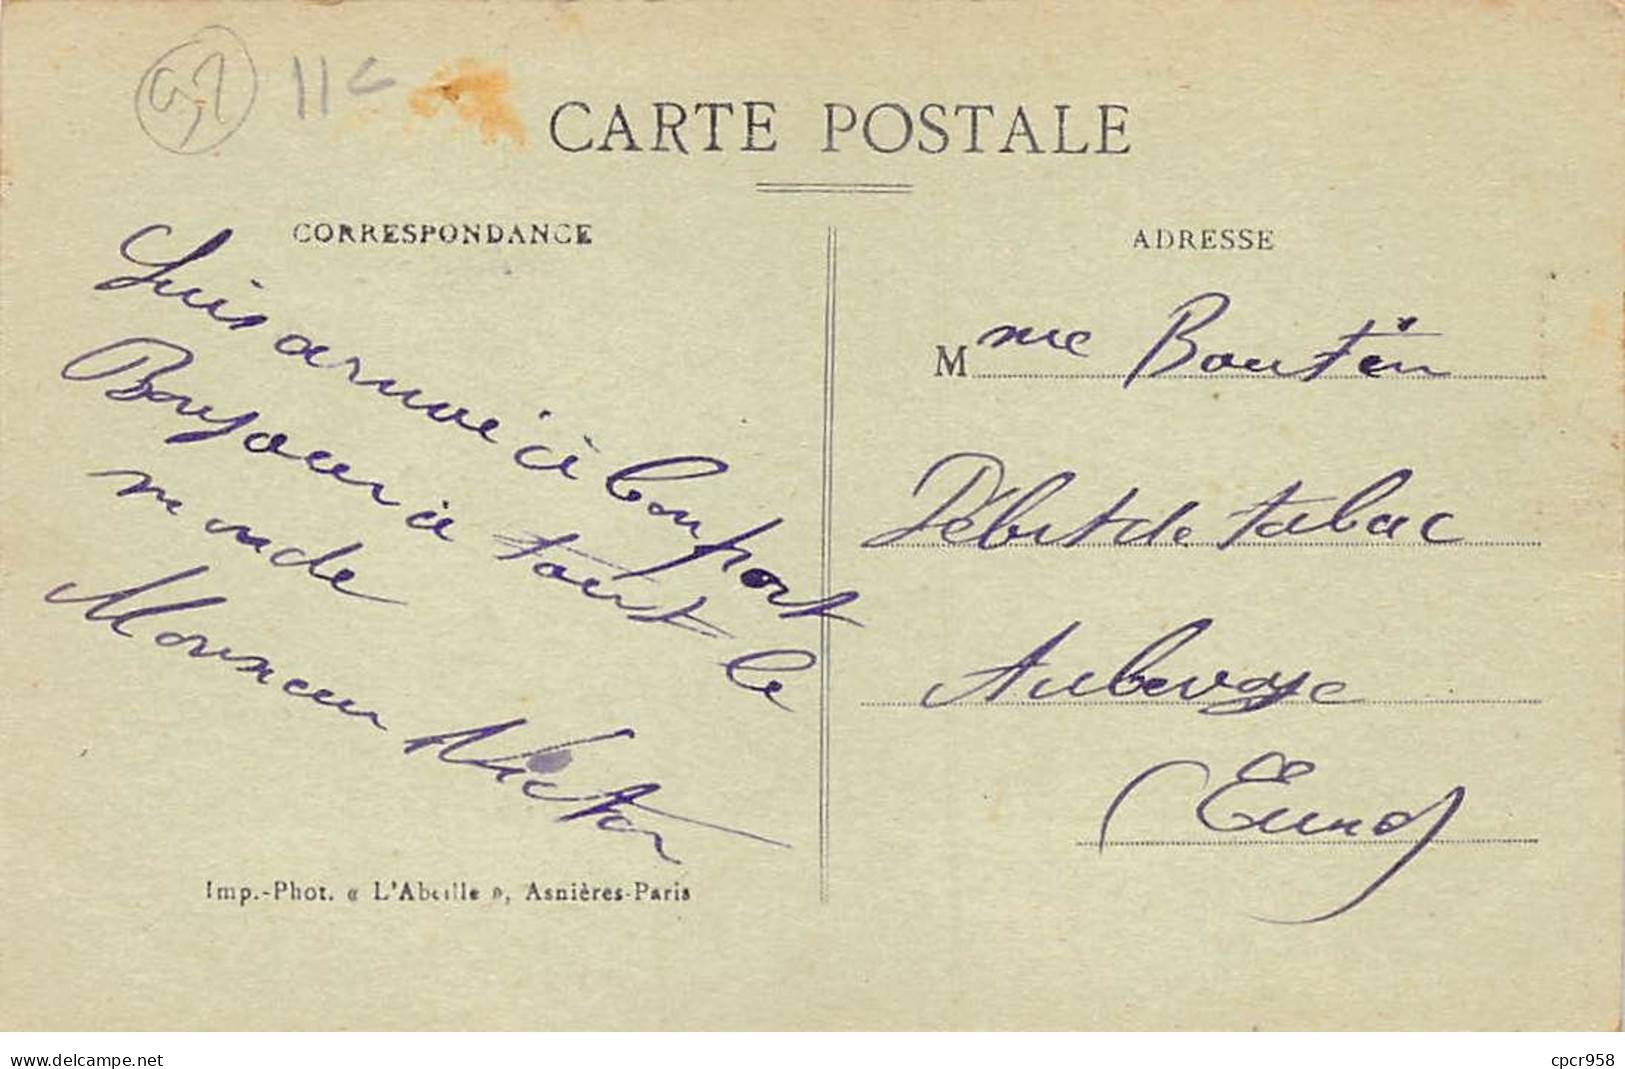 92 11c
CARTE POSTALE
CORRESPONDANCE
ADRESSE
Suis arrivé à bon port
Bonjour à tout le
monde
Monsieur Victor
Imp.-Phot. « L'Abeille », Asnières-Paris
Mme Boutin
Débit de tabac
Aubevoye
(Eure)
www.delcampe.net
cpcr958